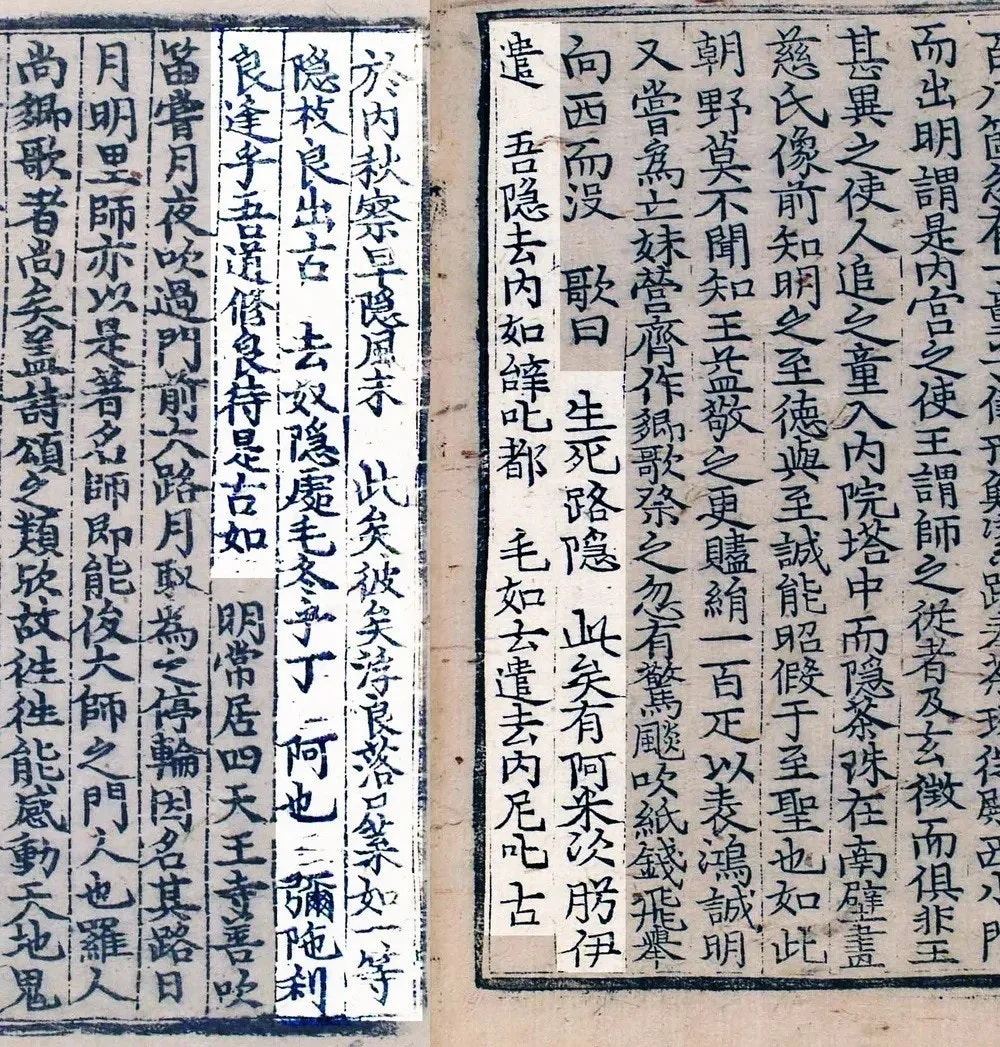 而出明謂是内宮之使王謂師之從者及玄徵而俱非王
甚異之使人追之童入内院塔中而隠茶珠在南壁畫
慈氏像前知明之至德與至誠能昭假于至聖也如此
朝野莫不聞知王益敬之更贐絹一百疋以表鴻誠明
又嘗爲亡妹營齋作鄉歌祭之忽有驚颷吹紙錢飛舉
向西而没 歌曰 生死路隐 此矣有阿米次肹伊
遣 吾隐去内如辝叱都 毛如去遣去内尼叱古
於内秋察早隐風未 此矣彼矣浮良落尸葉如一等
隐枝良出古 去奴隐處毛冬乎丁 阿也 彌陁刹
良逢乎吾道修良待是古如 明常居四天王寺善吹
笛嘗月夜吹過門前大路月馭為之停輪因名其路曰
月明里師亦以是著名師即能俊大師之門人也羅人
尚鄉歌者尚矣盖詩頌之類歟故徃徃能感動天地鬼